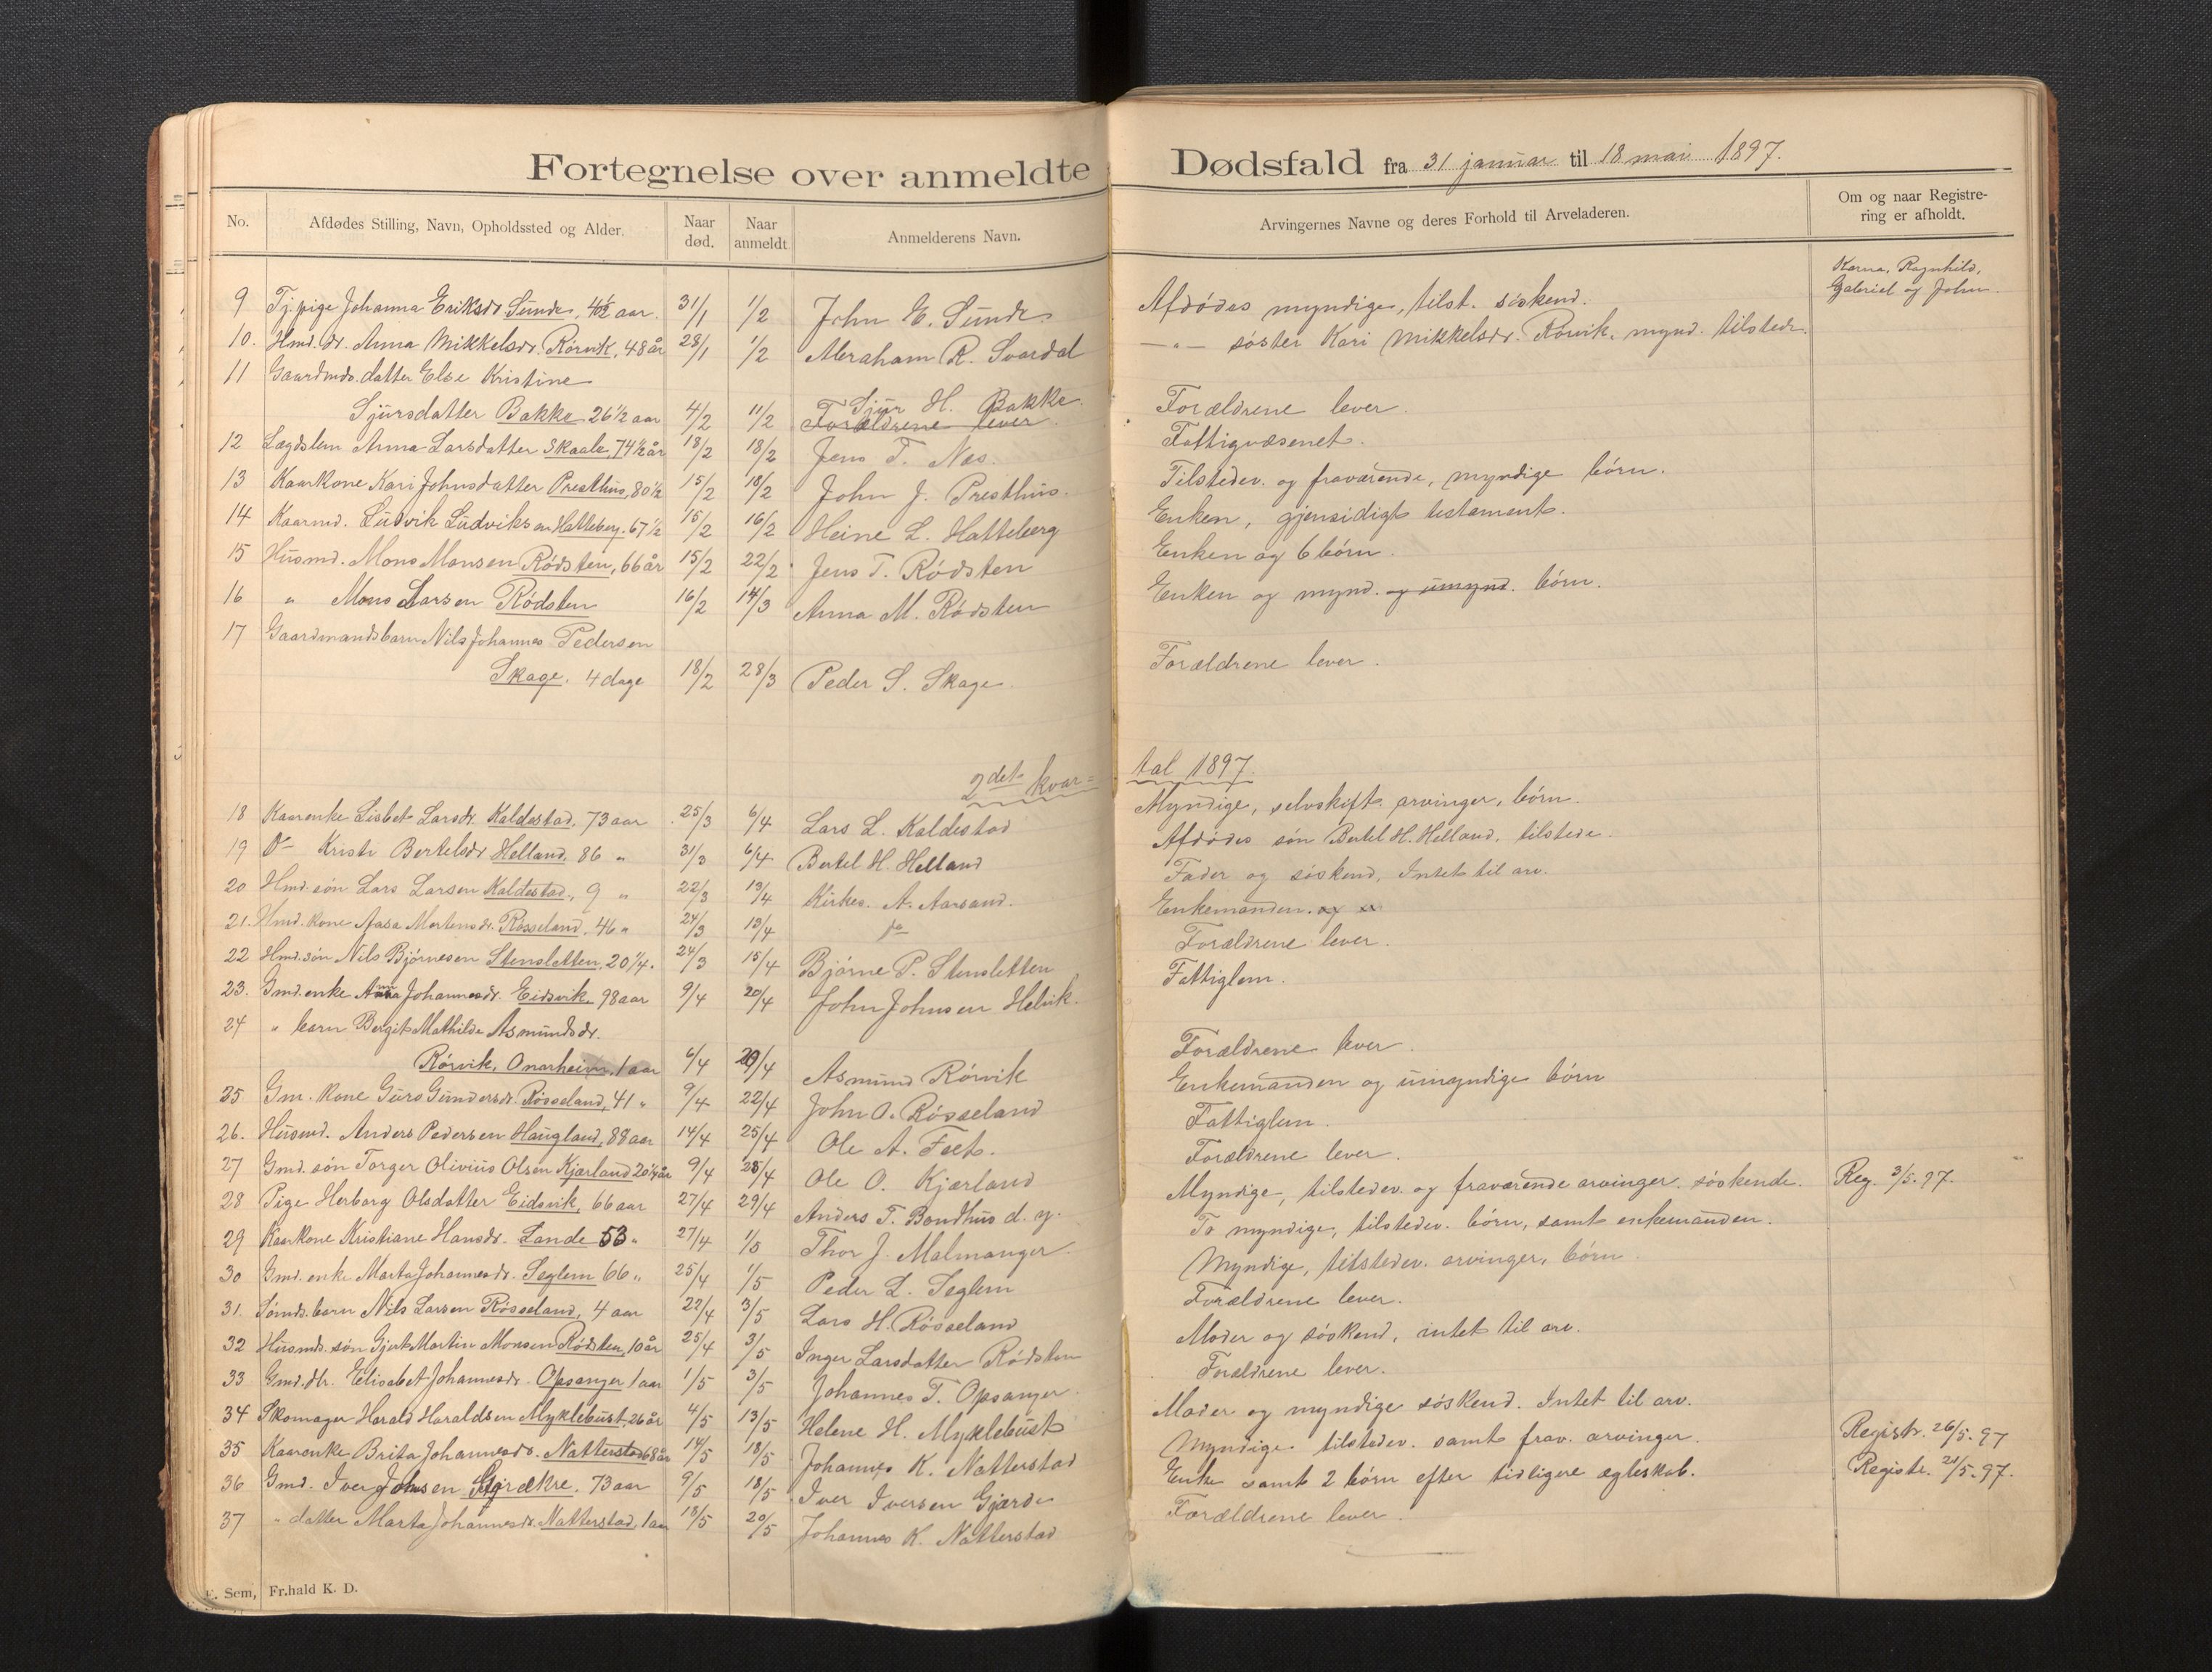 Fortegnelse over anmeldte Dødsfald fra 31 januar til 18 mai 1897.
No. Afdødes Stilling, Navn, Opholdssted og Alder. Naar død. Naar anmeldt Anmelderens Navn. Arvingernes Navne og deres Forhold til Arveladeren. Om og naar Registrering er afholdt.
Karna, Ragnhild, Gabriel og John.
9 Tj.pige Johanna Eriksdr Sunde, 4½ aar. 31/1 1/2 John E. Sunde Afdødes myndige, tilst. søskend.
10. Hmd. dr. Anna Mikkelsdr. Rørvik, 48 år 28/1 1/2 Abraham R. Svardal —"— søster Kari Mikkelsdr. Rørvik, mynd. tilstede.
11 Gaardmds.datter Else Kristine
Sjursdatter Bakke 26½ aar 4/2 11/2 Sjur H. Bakke. Forældrene lever.
Forældrene lever
12 Lægdslem Anna Larsdatter Skaale, 74½ år 18/2 18/2 Jens T. Nes. Fattigvæsenet.
13 Kaarkone Kari Johnsdatter Presthus, 80½ 15/2 18/2 John J. Presthus. Tilstedev. og fraværende, myndige børn.
14 Kaarmd. Ludvik Ludviksen Hatteberg. 67½ 15/2 16/2 Heine L. Hatteberg Enken, gjensidigt testament.
15 Husmd. Mons Monsen Rødsten, 66 år 15/2 22/2 Jens T. Rødsten Enken og 6 børn.
16 " Mons Larsen Rødsten 16/2 14/3 Anna M. Rødsten Enken og mynd. og umynd. børn.
17 Gaardmandsbarn Nils Johannes Pedersen
Skage. 4 dage 18/2 28/3 Peder S. Skage. Forældrene lever.
2det kvar= tal 1897.
18 Kaarenke Lisbet Larsdr. Kaldestad, 73 aar 25/3 6/4 Lars L. Kaldestad Myndige, selvskift. arvinger, børn.
19 Do Kristi Bertelsdr Helland. 86 " 31/3 6/4 Bertel H. Helland Afdødes søn Bertel H. Helland, tilstede.
20 Hmd. søn Lars Larsen Kaldestad, 9 " 22/3 13/4 Kirkes. A. Aarsand. Fader og søskend, Intet til arv.
21. Hmd. kone Aasa Mortensdr. Røsseland, 46 " 24/3 13/4 do Enkemanden. og
22 Hmd. søn Nils Bjørnesen Stensletten, 20¼. 24/3 15/4 Bjørne P. Stensletten Forældrene lever.
23. Gmd. enke Anna Johannesdr. Eidsvik 98 aar 9/4 20/4 John Johnsen Helvik. Fattiglem.
24 " barn Bergit Mathilde Asmundsdr.
Rørvik, Onarheim, 1 aar 6/4 20/4 Asmund Rørvik Forældrene lever.
25 Gm. kone Guro Gundersdr. Røsseland, 41 " 9/4 22/4 John O. Røsseland Enkemanden og umyndige børn
26. Husmd. Anders Pedersen Haugland, 88 aar 14/4 25/4 Ole A. Fset. Fattiglem.
27 Gmd. søn Torger Olivius Olsen Kjærland 20¼ år 9/4 28/4 Ole O. Kjærland Forældrene lever.
28 Pige Herborg Olsdatter Eidsvik, 66 aar 27/4 29/4 Anders T. Bondhus d. y. Myndige, tilstedev. og fraværende arvinger. søskende. Reg. 3/5. 97.
29 Kaarkone Kristiane Hansdr. Lande 53 " 27/4 1/5 Thor J. Malmanger To myndige, tilstedev. børn, samt enkemanden.
30 Gmd. enke Marta Johannesdr. Seglem 66 " 25/4 1/5 Peder L. Seglem Myndige, tilstedev. arvinger, børn.
31. Sømds. barn Nils Larsen Røsseland, 4 aar 22/4 3/5 Lars H. Røsseland Forældrene lever.
32 Husmds. søn Gjert Martin Monsen Rødsten, 10 år 25/4 3/5 Inger Larsdatter Rødsten Moder og søskend, intet til arv.
33 Gmd. dtr. Elisabet Johannesdr. Opsanger 1 aar 1/5 3/5 Johannes T. Opsanger. Forældrene lever.
34 Skomager Harald Haraldsen Myklebust, 26 år 4/5 13/5 Helene H. Myklebust Moder og myndige søskend. Intet til arv.
35 Kaarenke Brita Johannesdr. Natterstad 68 år 14/5 18/5 Johannes K. Natterstad Myndige tilstedev. samt frav. arvinger. Registr. 26/5. 97
36 Gmd. Iver Johnsen Gjrækre. 73 aar 9/5 18/5 Iver Iversen Gjærde Enke samt 2 børn efter tidligere ægteskab. Registr. 21/5. 97.
37 " datter Marta Johannesdr. Natterstad, 1 aar 18/5 20/5 Johannes K. Natterstad Forældrene lever.
Sem, Fr.hald K. D.